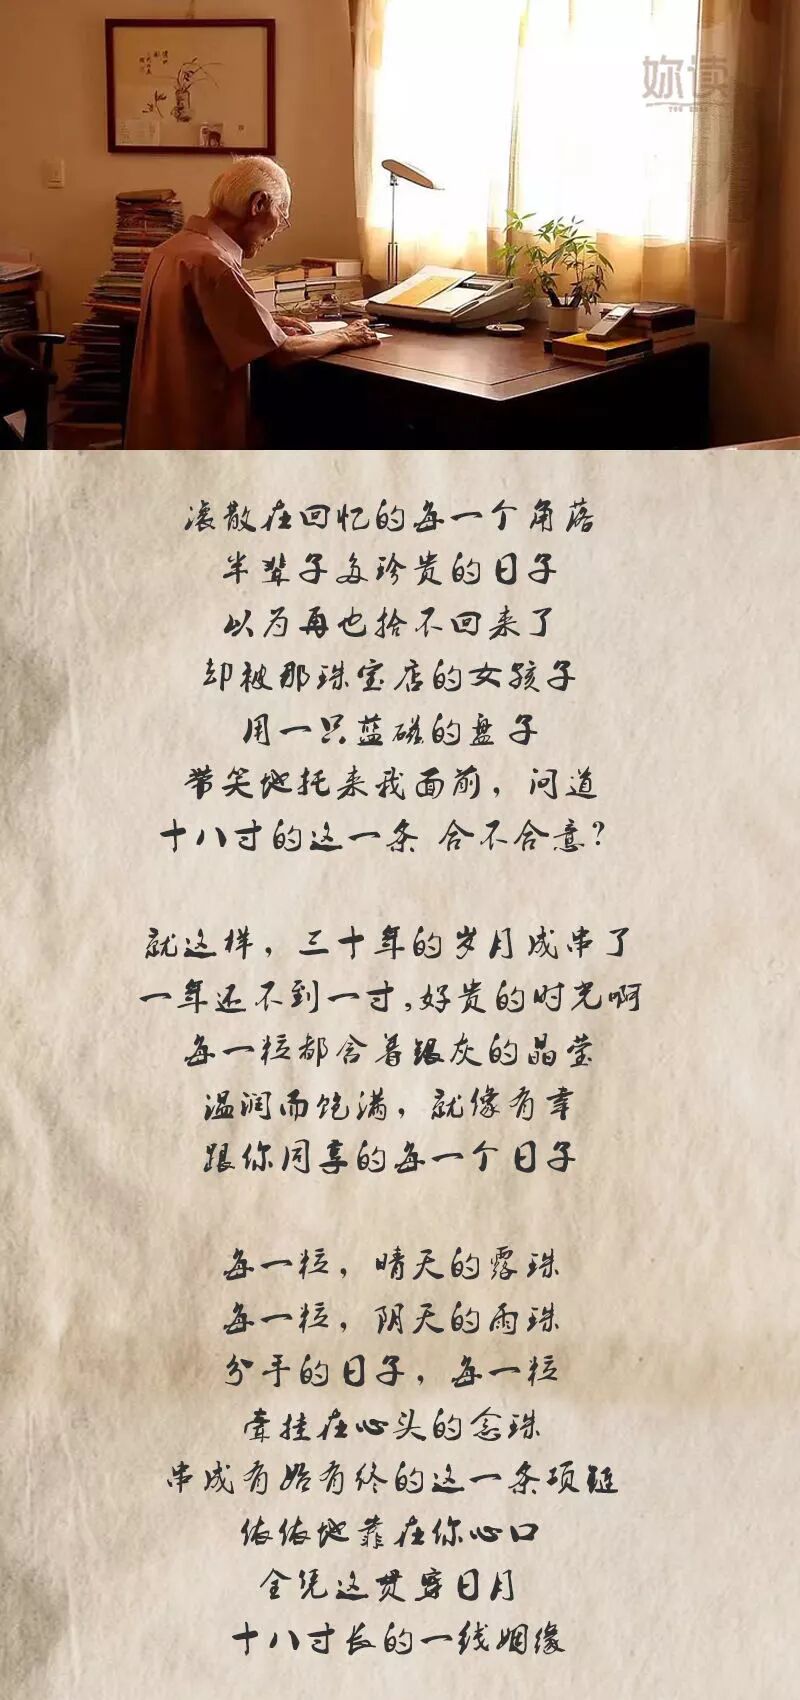 妳读
YOU READ
滚散在回忆的每一个角落
半辈子多珍贵的日子
以为再也拾不回来了
却被那珠宝店的女孩子
用一只蓝磁的盘子
带笑地托来我面前，问道
十八寸的这一条 合不合意？
就这样，三十年的岁月成串了
一年还不到一寸，好贵的时光啊
每一粒都含着银灰的晶莹
温润而饱满，就像有幸
跟你同享的每一个日子
每一粒，晴天的露珠
每一粒，阴天的雨珠
分手的日子，每一粒
牵挂在心头的念珠
串成有始有终的这一条项链
依依地靠在你心口
全凭这贯穿日月
十八寸长的一线姻缘